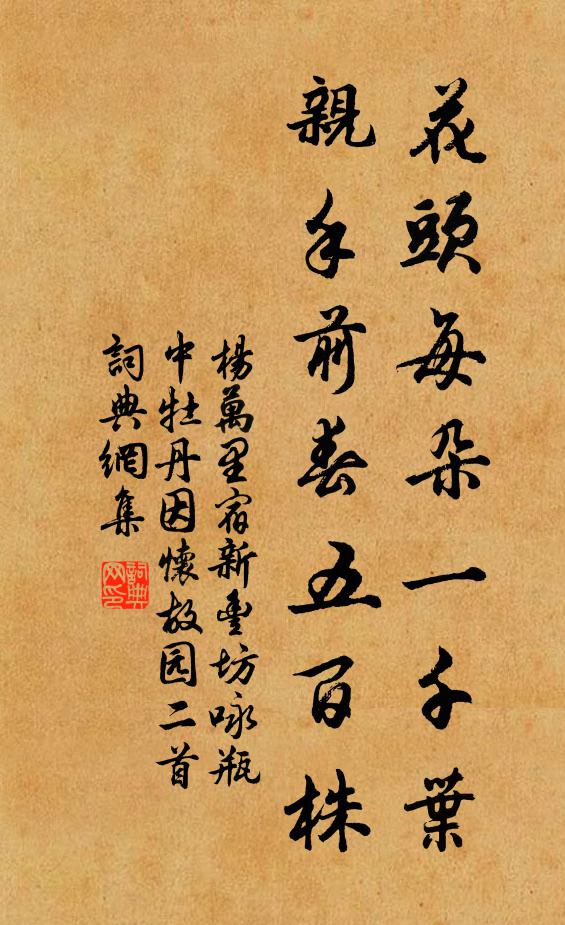 花頭每朵一千葉
親手前春五百株
楊萬里宿新豐坊咏瓶
中牡丹因懷故园二首
詞典網集
詞典网印